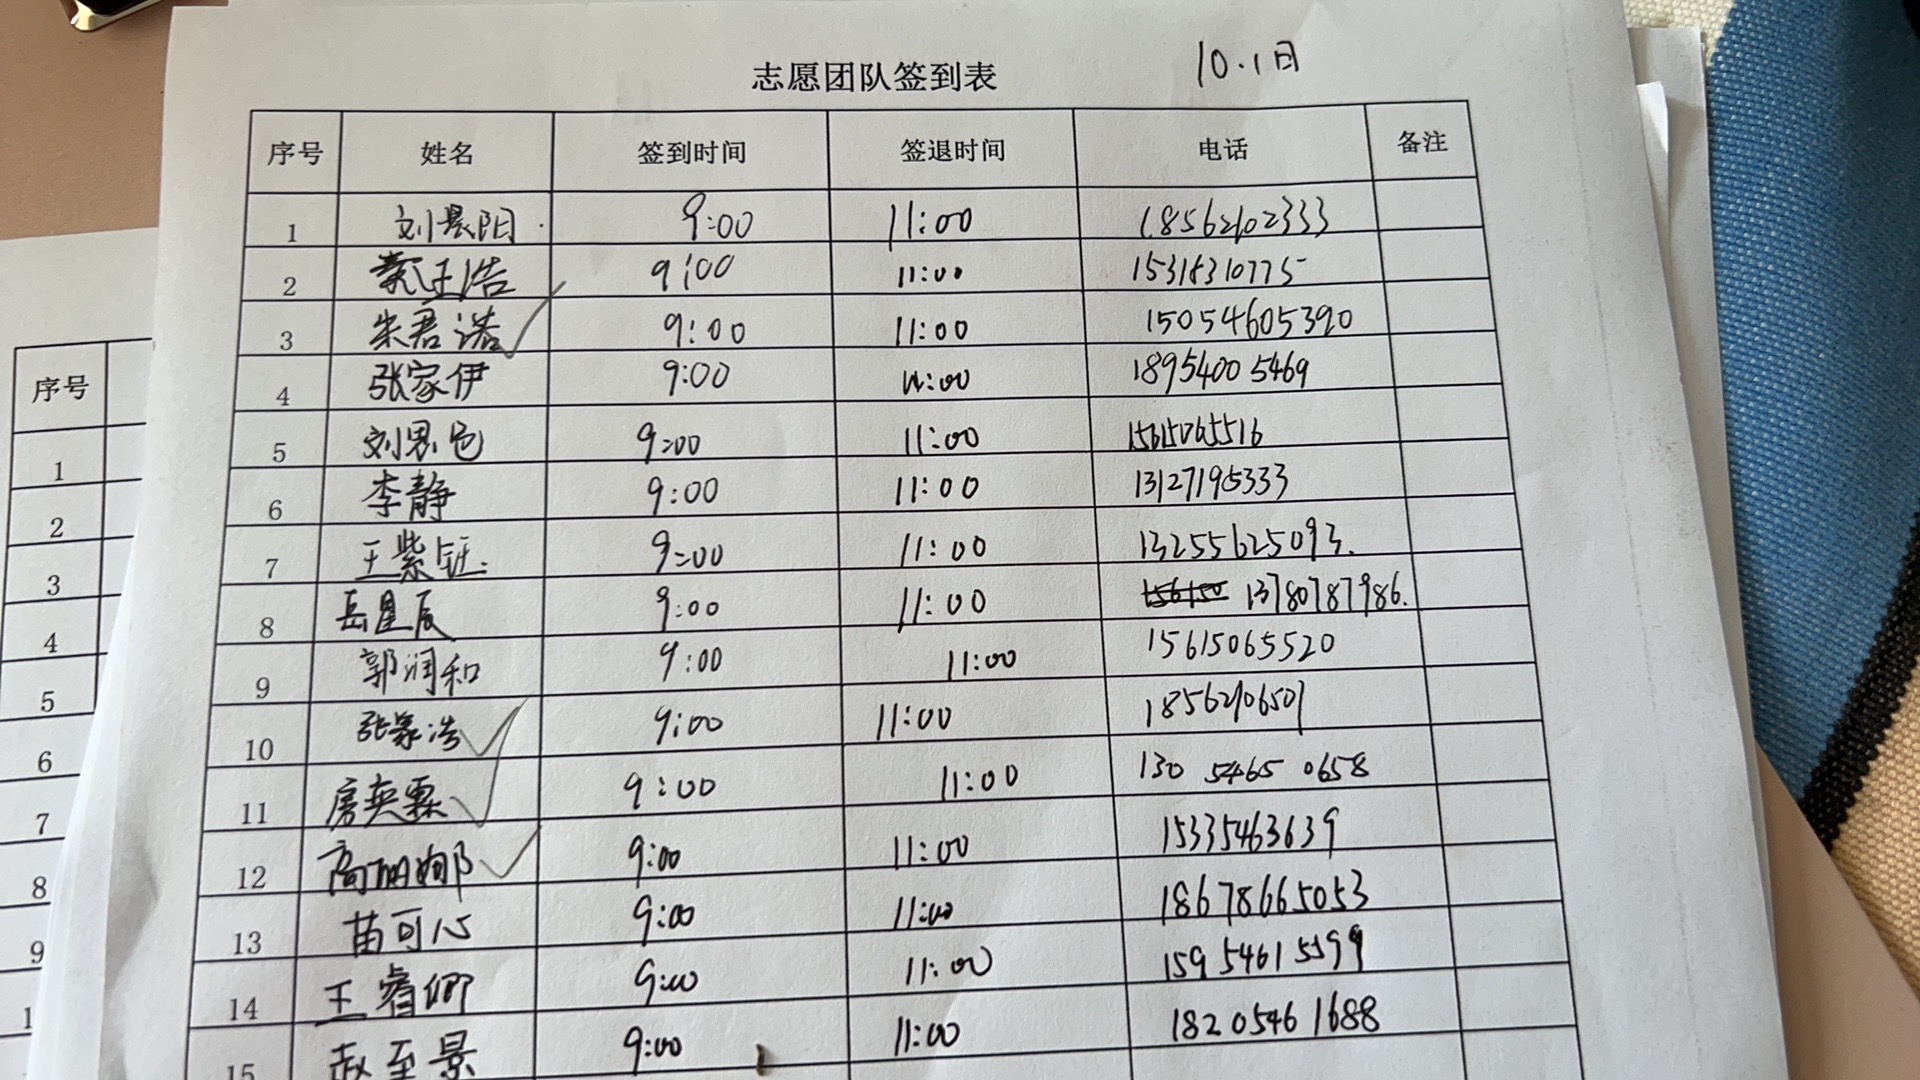 志愿团队签到表 10.1日
序号 姓名 签到时间 签退时间 电话 备注
1 刘景阳 9:00 11:00 18562102333
2 浩 9:00 11:00 15318310775
3 朱君诺 9:00 11:00 15054605390
4 张家伊 9:00 11:00 18954005469
5 刘思 9:00 11:00 15615065516
6 李静 9:00 11:00 13127195333
7 王紫钰 9:00 11:00 13255625093.
8 岳星辰 9:00 11:00 13780787986.
9 郭润和 9:00 11:00 15615065520
10 张家浩 9:00 11:00 18562106501
11 房奕霖 9:00 11:00 130 5465 0658
12 高 9:00 11:00 15335463639
13 苗可心 9:00 11:00 18678665053
14 王睿卿 9:00 11:00 15954615599
15 赵至景 9:00 11:00 18205461688
序号
1
2
3
4
5
6
7
8
9
1